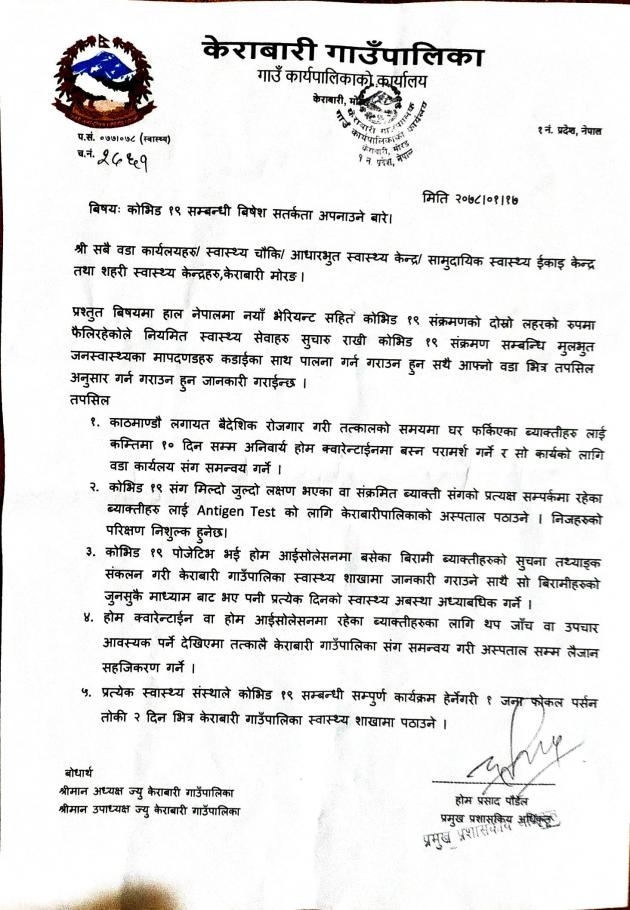 केराबारी गाउँपालिका
गाउँ कार्यपालिकाको कार्यालय
केराबारी, मोरङ
केराबारी गाउँपालिका
गाउँ कार्यपालिकाको कार्यालय
केराबारी, मोरङ
१ नं. प्रदेश, नेपाल
१ नं. प्रदेश, नेपाल
प.सं. ०७७।०७८ (स्वास्थ्य)
च.नं.
मिति २०७८।०१।१७
बिषयः कोभिड १९ सम्बन्धी बिषेश सतर्कता अपनाउने बारे।
श्री सबै वडा कार्यलयहरु/ स्वास्थ्य चौकि/ आधारभुत स्वास्थ्य केन्द्र/ सामुदायिक स्वास्थ्य ईकाइ केन्द्र
तथा शहरी स्वास्थ्य केन्द्रहरु,केराबारी मोरङ।
प्रश्तुत बिषयमा हाल नेपालमा नयाँ भेरियन्ट सहित कोभिड १९ संक्रमणको दोस्रो लहरको रुपमा
फैलिरहेकोले नियमित स्वास्थ्य सेवाहरु सुचारु राखी कोभिड १९ संक्रमण सम्बन्धि मुलभुत
जनस्वास्थ्यका मापदण्डहरु कडाईका साथ पालना गर्न गराउन हुन सथै आफ्नो वडा भित्र तपसिल
अनुसार गर्न गराउन हुन जानकारी गराईन्छ ।
तपसिल
१. काठमाण्डौ लगायत बैदेशिक रोजगार गरी तत्कालको समयमा घर फर्किएका ब्याक्तीहरु लाई
कम्तिमा १० दिन सम्म अनिवार्य होम क्वारेन्टाईनमा बस्न परामर्श गर्ने र सो कार्यको लागि
वडा कार्यालय संग समन्वय गर्ने ।
२. कोभिड १९ संग मिल्दो जुल्दो लक्षण भएका वा संक्रमित ब्याक्ती संगको प्रत्यक्ष सम्पर्कमा रहेका
ब्याक्तीहरु लाई Antigen Test को लागि केराबारीपालिकाको अस्पताल पठाउने । निजहरुको
परिक्षण निशुल्क हुनेछ।
३. कोभिड १९ पोजेटिभ भई होम आईसोलेसनमा बसेका बिरामी ब्याक्तीहरुको सुचना तथ्याङ्क
संकलन गरी केराबारी गाउँपालिका स्वास्थ्य शाखामा जानकारी गराउने साथै सो बिरामीहरुको
जुनसुकै माध्याम बाट भए पनी प्रत्येक दिनको स्वास्थ्य अबस्था अध्याबधिक गर्ने ।
४. होम क्वारेन्टाईन वा होम आईसोलेसनमा रहेका ब्याक्तीहरुका लागि थप जाँच वा उपचार
आवस्यक पर्ने देखिएमा तत्कालै केराबारी गाउँपालिका संग समन्वय गरी अस्पताल सम्म लैजान
सहजिकरण गर्ने ।
५. प्रत्येक स्वास्थ्य संस्थाले कोभिड १९ सम्बन्धी सम्पुर्ण कार्यक्रम हेर्नेगरी १ जना फोकल पर्सन
तोकी २ दिन भित्र केराबारी गाउँपालिका स्वास्थ्य शाखामा पठाउने ।
बोधार्थ
श्रीमान अध्यक्ष ज्यु केराबारी गाउँपालिका
श्रीमान उपाध्यक्ष ज्यु केराबारी गाउँपालिका
होम प्रसाद पौडेल
प्रमुख प्रशासकिय अधिकृत
प्रमुख प्रशासकीय